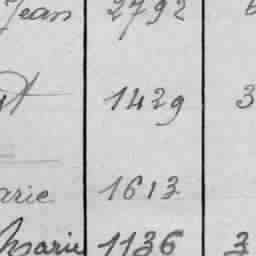 Jean 2792
1429 3
1613
Marie 1136 3